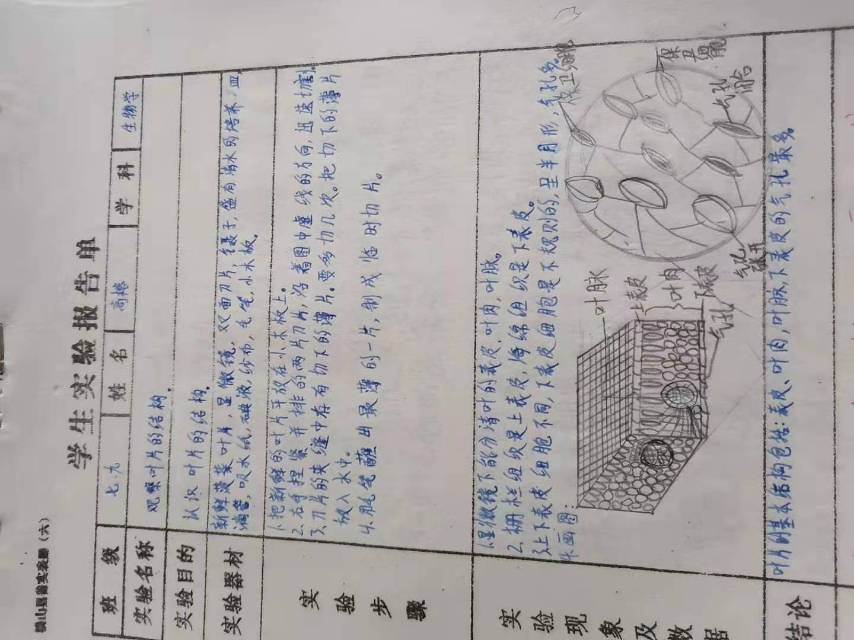 学生实验报告单
班级 七.九 姓名 学科 生物学
实验名称 观察叶片的结构。
实验目的 认识叶片的结构。
实验器材 新鲜菠菜叶片，显微镜，双面刀片，镊子，盛有清水的培养皿，
滴管，吸水纸，碘液，纱布，毛笔，小木板。
实验步骤
1.把新鲜的叶片平放在小木板上。
2.右手捏紧并排的两片刀片，沿着图中虚线的方向，迅速切割。
3.刀片的夹缝中存有切下的薄片。要多切几次。把切下的薄片
放入水中。
4.用毛笔蘸出最薄的一片，制成临时切片。
实验现象及数据
1.显微镜下能分清叶的表皮，叶肉，叶脉。
2.栅栏组织是上表皮，海绵组织是下表皮。
3.上下表皮细胞不同，下表皮细胞是不规则的，且半月形，气孔多。
4.画图：
叶脉
上表皮
叶肉
下表皮
气孔
保卫细胞
气孔
闭合
气孔
张开
结论 叶片的基本结构包括：表皮、叶肉，叶脉，下表皮的气孔最多。